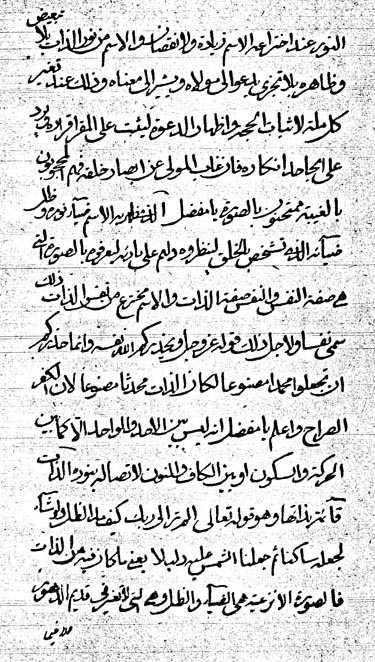 تبعيض
النور عند اختراعه الاسم زيادة ولا نفصان والاسم من نور الذات بلا
وظاهره بلا تجزي يدعوا الى مولاه ويشير الى معناه وذلك عند تغيير
كل ملة لاثبات الحجة واظهار الدعوة ليثبت على المقر اقراره ويرد
على الجاحد انكاره فان غاب المولى عن ابصار خلقه فهم المحجوبون
بالغيبة ممتحنون بالصورة يا مفضل الاسم ضياء نوره وظل
ضيائه الذي تشخص به الخلق لينظروه ودلهم على بارئه ليعرفوه بالصورة التي
هي صفة النفس والنفس صفة الذات والاسم مخترع من نفس الذات ذلك
سمي نفسا ولاجل ذلك قوله عز وجل ويحذركم الله نفسه وانما حذركم
ان تجعلوا محمدا مصنوعا لكان الذات محدثا مصنوعا لان الكفر
الصراح واعلم يا مفضل انه ليس بين الاحد والواحد الا كما بين
الحركة والسكون او بين الكاف والنون لاتصاله بنور الذات
قائمة بذاتها وهو قوله تعالى الم تر الى ربك كيف مد الظل ولو شاء
لجعله ساكنا ثم جعلنا الشمس عليه دليلا يعني ما كان فيه من الذات
فالصورة الانزعية هي الضياء والظل وهي التي لا تتغير في قديم الدهور